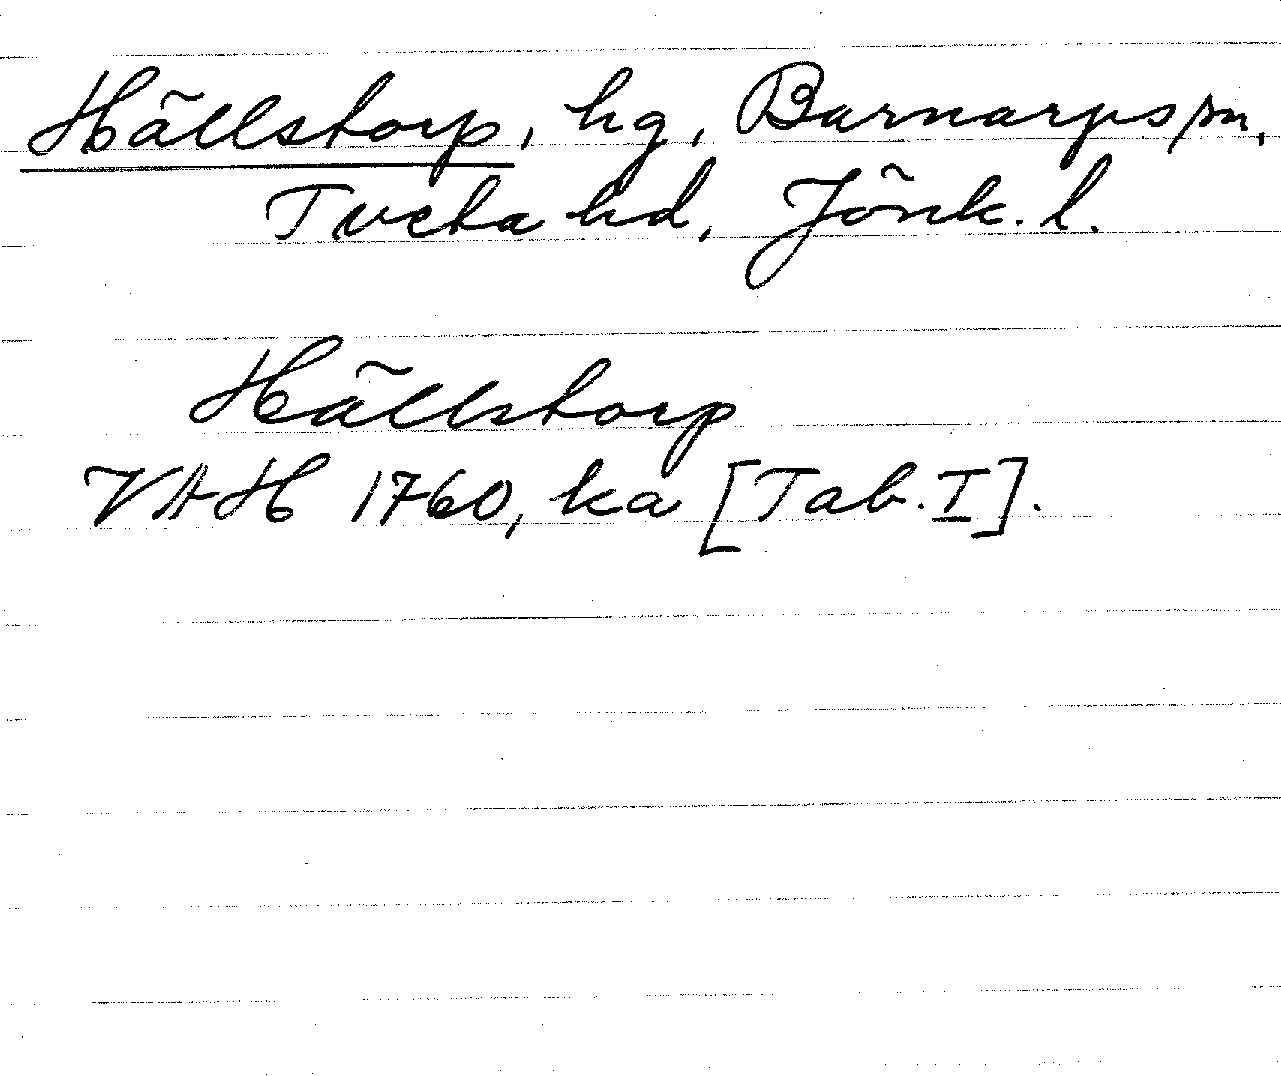 Hällstorp, hg, Barnarps sn,
Tveta hd, Jönk. l.
Hällstorp
VAH 1760, ka [Tab. I].